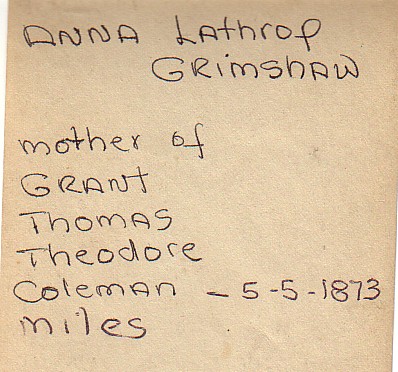 ANNA Lathrop
GRimshaw
mother of
GRANT
Thomas
Theodore
Coleman - 5-5-1873
miles